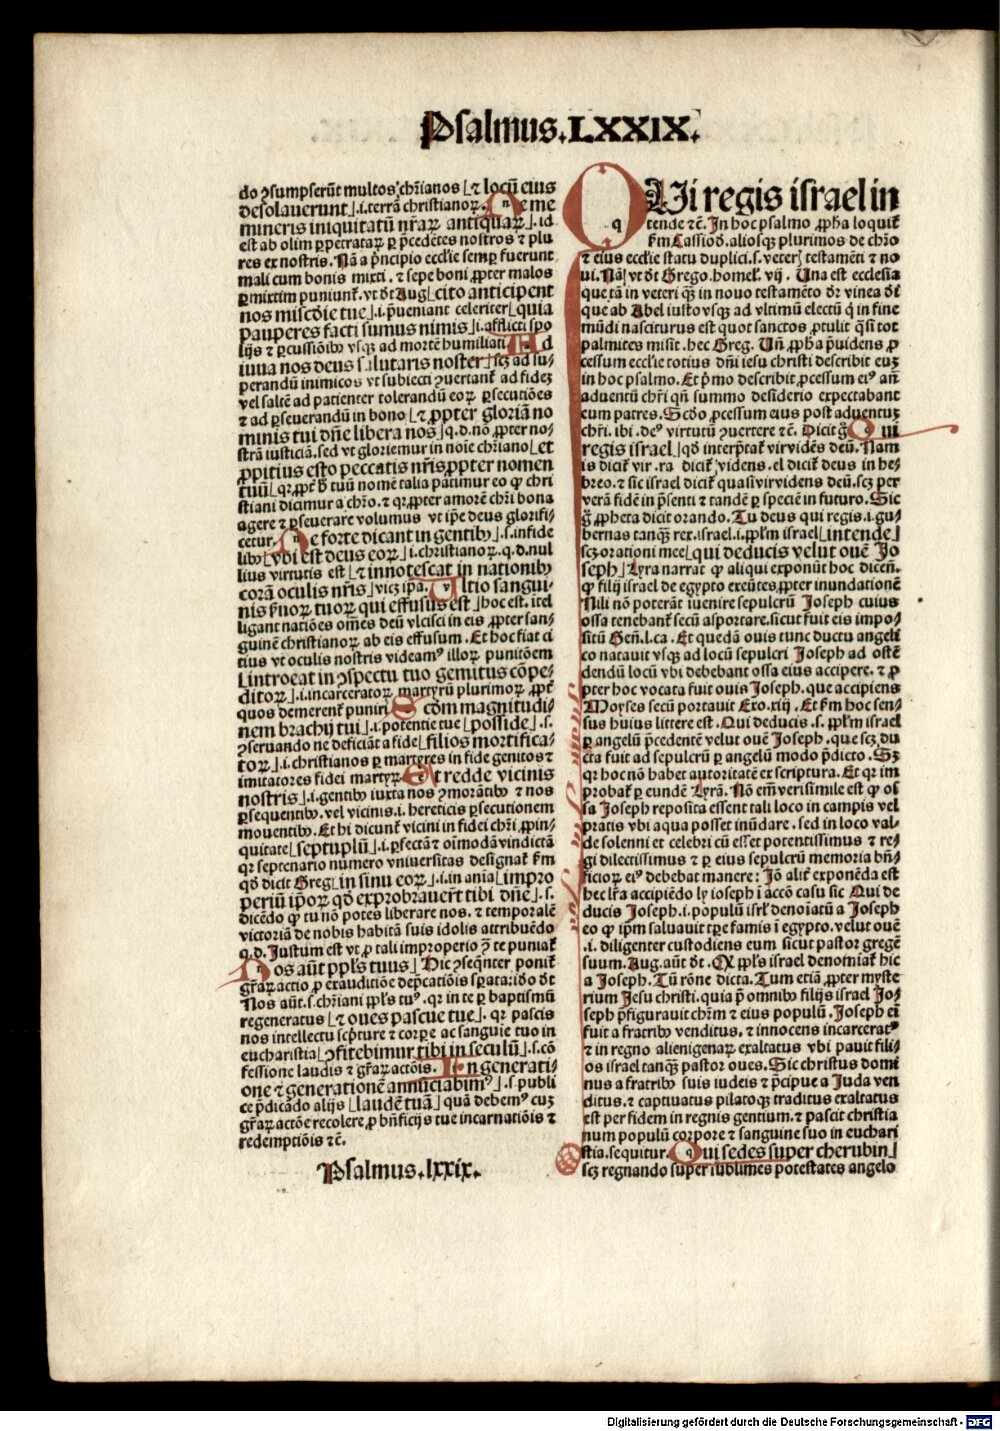 Psalmus.LXXIX.
do ꝯsumpserūt multos chr̄ianos [⁊ locū eius
desolauerunt].i.terrā christianoꝝ. Ne me
mineris iniquitatū nr̄aꝝ antiquaꝝ].id
est ab olim ꝑpetrataꝝ ꝑ p̄cedētes nostros ⁊ plu
res ex nostris. Nā a pͥncipio ecclīe semꝑ fuerunt
mali cum bonis mixti. ⁊ sepe boni ꝓpter malos
ꝑmixtim puniunt̄. vt dt̄ Aug[cito anticipent
nos miscd̄ie tue].i.p̄ueniant celeriter[quia
pauperes facti sumus nimis].i.afflicti spo
lijs ⁊ ꝑcussiōibꝰ vsqꝫ ad mortē humiliati. Ad
iuua nos deus salutaris noster]scꝫ ad su/
perandū inimicos vt subiecti ꝯuertant̄ ad fideꝫ
vel saltē ad patienter tolerandū eoꝝ ꝑsecutiōes
⁊ ad ꝑseuerandū in bono[⁊ ꝓpter gloriā no
minis tui dn̄e libera nos]q.d.nō ꝓpter no/
strā iusticiā.sed vt gloriemur in noīe chr̄iano[et
ꝓpitius esto peccatis nr̄is ꝓpter nomen
tuū]qꝛ ꝓpt̄ b̄ tuū nomē talia patimur eo ꝙ chri
stiani dicimur a chr̄o. ⁊ qꝛ ꝓpter amorē chr̄i bona
agere ⁊ ꝑseuerare volumus vt ip̄e deus glorifi/
cetur. Ne forte dicant in gentibꝰ].s.infide
libꝰ[vbi est deus eoꝝ].i.christianoꝝ.q.d.nul
lius virtutis est[⁊ innotescat in nationibꝰ
corā oculis nr̄is]vicꝫ ip̄a. Vltio sangui/
nis ẜuoꝝ tuoꝝ qui effusus est]hoc est.itel
ligant natiōes om̄es deū vlcisci in eis ꝓpter san/
guinē christianoꝝ ab eis effusum. Et hoc fiat ci
tius vt oculis nostris videamꝰ illoꝝ punitōem
[introeat in ꝯspectu tuo gemitus cōpe/
ditoꝝ].i.incarceratoꝝ martyrū plurimoꝝ ꝓpt̄
quos demerent̄ puniri. Scd̄m magnitudi/
nem brachij tui].i.potentie tue[posside].s.
ꝯseruando ne deficiāt a fide[filios mortifica/
toꝝ].i.christianos ꝑ martyres in fide genitos ⁊
imitatores fidei martyꝝ. Et redde vicinis
nostris].i.gentibꝰ iuxta nos ꝯmorātibꝰ ⁊ nos
ꝑsequentibꝰ.vel vicinis.i.hereticis ꝑsecutionem
mouentibꝰ. Et hi dicunt̄ vicini in fidei chr̄i ꝓpin/
quitate[septuplū].i.ꝑfectā ⁊ oīmodā vindictā
qꝛ septenario numero vniuersitas designat̄ ẜm
qd̄ dicit Greg[in sinu eoꝝ].i.in anīa[impro
periū ip̄oꝝ qd̄ exprobrauer̄t tibi dn̄e].s.
dicēdo ꝙ tu nō potes liberare nos. ⁊ temporalē
victoriā de nobis habitā suis idolis attribuēdo
q.d.Justum est vt ꝓ tali improperio ꝯ̄ te puniāt̄
Nos aūt ppl̄s tuus] Hic ꝯseqn̄ter ponit̄
gr̄aꝝ actio ꝓ exauditiōe dep̄catiōis sꝑata:ido dt̄
Nos aūt.s.chr̄iani ppl̄s tuꝰ.qꝛ in te ꝑ baptismū
regeneratus[⁊ oues pascue tue].qꝛ pascis
nos intellectu scp̄ture ⁊ corꝑe ac sanguie tuo in
eucharistia[ꝯfitebimur tibi in seculū].s.cō
fessione laudis ⁊ gr̄aꝝ actōis. In generati/
one ⁊ generationē annūciabimꝰ].s.publi
ce p̄dicādo alijs[laudē tuā] quā debemꝰ cuꝫ
gr̄aꝝ actōe recolere ꝓ bn̄ficijs tue incarnatiōis ⁊
redemptiōis ⁊c̄.
Psalmus.lxxix.
QUi regis israel in
tende ⁊c̄. In hoc psalmo ꝓph̄a loquit̄
ẜm Cassiod.aliosqꝫ plurimos de chr̄o
⁊ eius ecclīe statu duplici.s.veterꝭ testamēti ⁊ no
ui. Nā vt dt̄ Grego.homel̄.vij. Una est ecclesia
que tā in veteri qꝫ̄ in nouo testamēto dr̄ vinea dīi
que ab Abel iusto vsqꝫ ad vltimū electū qͥ in fine
mūdi nasciturus est quot sanctos ꝓtulit qͣsi tot
palmites misit.hec Greg. Un̄ ꝓph̄a p̄uidens ꝓ
cessum ecclīe totius dn̄i iesu christi describit euꝫ
in hoc psalmo. Et pͥmo describit ꝓcessum eiꝰ an̄
aduentū chr̄i qn̄ summo desiderio expectabant
eum patres. Scd̄o ꝓcessum eius post aduentuꝫ
chr̄i.ibi.deꝰ virtutū ꝯuertere ⁊c̄. Dicit gͦ Qui
regis israel]qd̄ interp̄tat̄ vir vidēs deū. Nam
is dicit̄ vir.ra dicit̄ videns.el dicit̄ deus in he/
breo. ⁊ sic israel dicit̄ quasi vir videns deū.scꝫ per
verā fidē in p̄senti ⁊ tandē ꝑ speciē in futuro. Sic
gͦ ꝓpheta dicit orando. Tu deus qui regis.i.gu/
bernas tanqꝫ̄ rex.israel.i.ppl̄m israel[intende]
scꝫ orationi mee[qui deducis velut ouē Jo
seph] Lyra narrat ꝙ aliqui exponūt hoc dicēn.
ꝙ filij israel de egypto exeūtes ꝓpter inundationē
Nili nō poterāt iuenire sepulcrū Joseph cuius
ossa tenebant̄ secū asportare.sicut fuit eis impo/
sitū Gen̄.l.ca. Et quedā ouis tunc ductu angeli
co natauit vsqꝫ ad locū sepulcri Joseph ad ostē
dendū locū vbi debebant ossa eius accipere. ⁊ ꝓ
pter hoc vocata fuit ouis Joseph. que accipiens
Moyses secū portauit Exo.xiij. Et ẜm hoc sen/
sus huius littere est. Qui deducis.s.ppl̄m israel
ꝑ angelū p̄cedentē velut ouē Joseph.que scꝫ du
cta fuit ad sepulcrū ꝑ angelū modo p̄dicto. Sꝫ
qꝛ hoc nō habet autoritatē ex scriptura. Et qꝛ im
probat̄ ꝑ eundē Lyrā. Nō em̄ verisimile est ꝙ os
sa Joseph reposita essent tali loco in campis vel
pratis vbi aqua posset inūdare.sed in loco val/
de solenni et celebri cū esset potentissimus ⁊ re/
gi dilectissimus ⁊ ꝑ eius sepulcrū memoria bn̄/
ficioꝝ eiꝰ debebat manere: Jō alit̄ exponēda est
hec lr̄a accipiēdo ly ioseph ī accō casu sic Qui de
ducis Joseph.i.populū isrl̄ denoīatū a Joseph
eo ꝙ ip̄m saluauit tꝑe famis ī egypto.velut ouē
.i.diligenter custodiens eum sicut pastor gregē
suum. Aug.aūt dt̄. Qꝙ ppl̄s israel denomīat̄ hic
a Joseph. Tū rōne dicta. Tum etiā ꝓpter myste
rium Jesu christi.quia p̄ omnibꝰ filijs israel Jo/
seph p̄figurauit chr̄m ⁊ eius populū. Joseph ei̇̄
fuit a fratribꝰ venditus. ⁊ innocens incarceratꝰ
⁊ in regno alienigenaꝝ exaltatus vbi pauit fili/
os israel tanqꝫ̄ pastor oues. Sic christus domi
nus a fratribꝰ suis iudeis ⁊ p̄cipue a Juda ven
ditus. ⁊ captiuatus pilatoqꝫ traditus exaltatus
est per fidem in regnis gentium. ⁊ pascit christia
num populū corpore ⁊ sanguine suo in euchari
stia.sequitur. Qui sedes super cherubin]
scꝫ regnando super sublimes potestates angelo
Digitalisierung gefördert durch die Deutsche Forschungsgemeinschaft - DFG